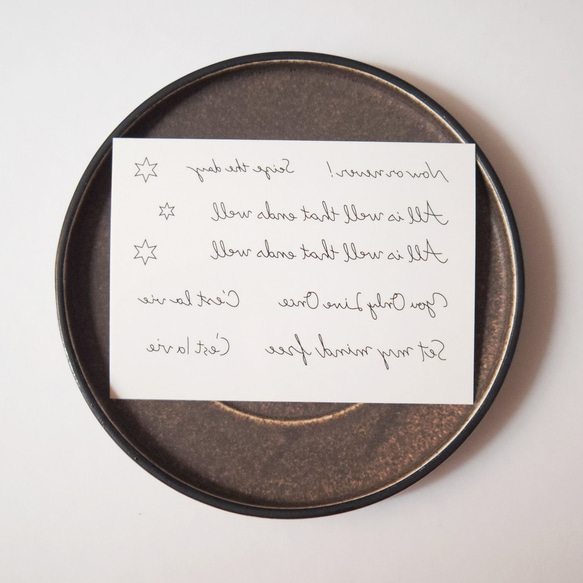 Now or never! Seize the day
All is well that ends well
All is well that ends well
You Only Live Once C'est la vie
Set my mind free C'est la vie